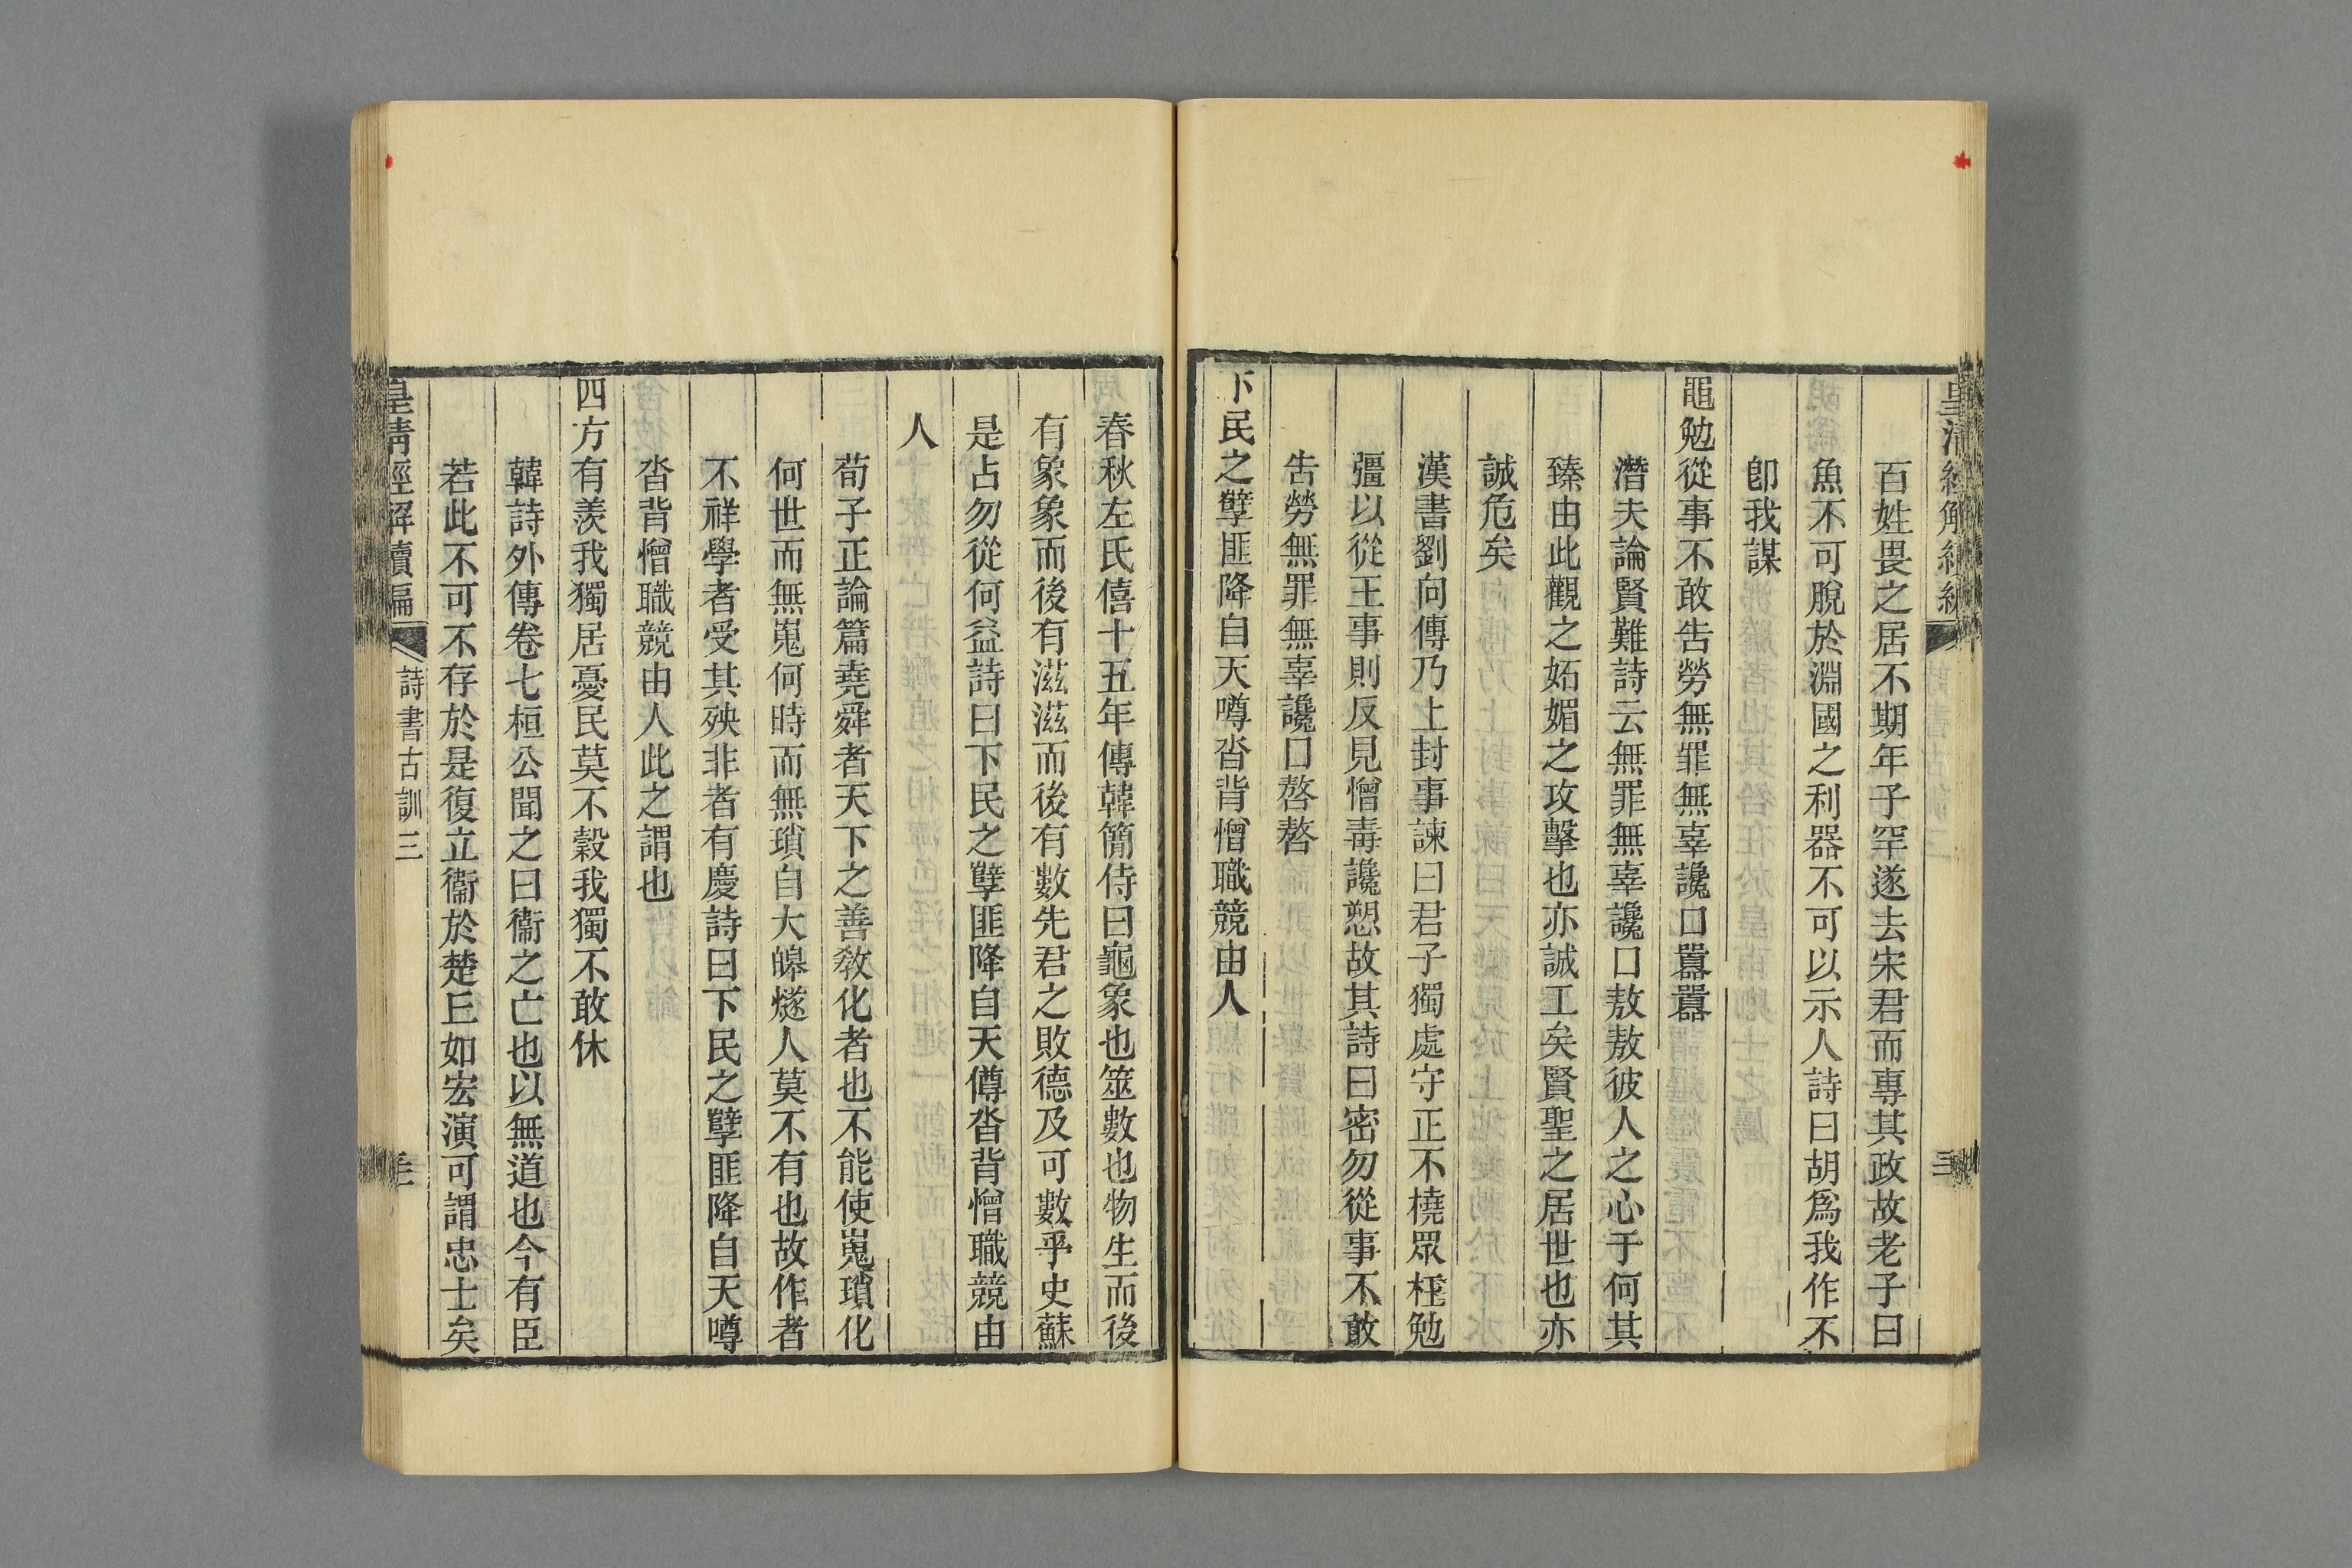 百姓畏之居不期年子罕遂去宋君而專其政故老子曰
魚不可脫於淵國之利器不可以示人詩曰胡爲我作不
卽我謀
黽勉從事不敢吿勞無罪無辜讒口囂囂
潛夫論賢難詩云無罪無辜讒口敖敖彼人之心于何其
臻由此觀之妬媚之攻擊也亦誠工矣賢聖之居世也亦
誠危矣
漢書劉向傳乃上封事諫曰君子獨處守正不橈眾枉勉
彊以從王事則反見憎毒讒愬故其詩曰密勿從事不敢
吿勞無罪無辜讒口嗸嗸
下民之孽匪降自天噂沓背憎職競由人
春秋左氏僖十五年傳韓簡侍曰龜象也筮數也物生而後
有象象而後有滋滋而後有數先君之敗德及可數乎史蘇
是占勿從何益詩曰下民之孽匪降自天僔沓背憎職競由
人
荀子正論篇堯舜者天下之善敎化者也不能使嵬瑣化
何世而無嵬何時而無瑣自大皞燧人莫不有也故作者
不祥學者受其殃非者有慶詩曰下民之孽匪降自天噂
沓背憎職競由人此之謂也
四方有羨我獨居憂民莫不穀我獨不敢休
韓詩外傳卷七桓公聞之曰衞之亡也以無道也今有臣
若此不可不存於是復立衞於楚丘如宏演可謂忠士矣
皇淸經解續編
詩書古訓三